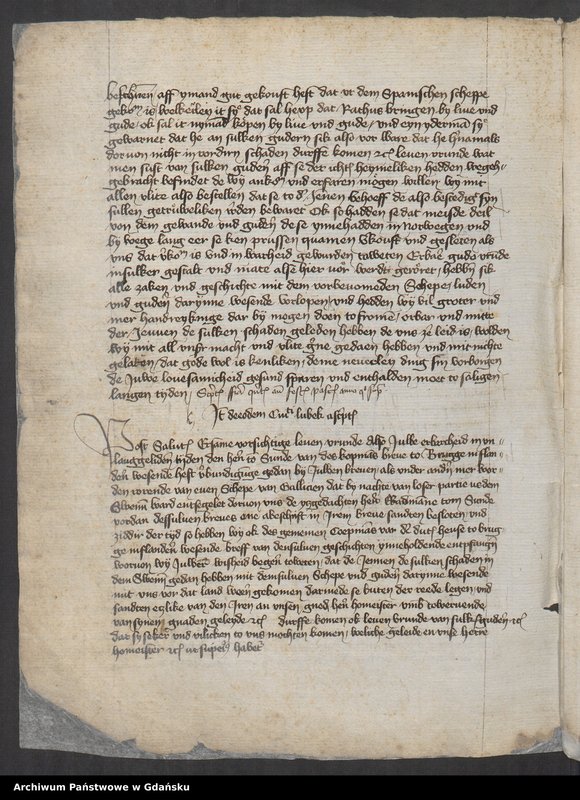 beschreuen aff ymand gut gekouft heft dat vt dem Spanischen scheppe
gekomen is welkerleyen it sy dat sal heyp dat Rathus bringen by liue vnd
gude ok sal it nymand kopen by liue vnd gude vnd eyn yderman sy
gewarnet dat he an sulken gudern sik also vor ware dat he hirnamals
dor von nicht in vordirn schaden durffe komen etc leuen vrunde wat
men sust van sulken guderen aff se der ichts heymeliken hedden wegeh-
gebracht befindet de wy ankomen vnd erfaren mogen willen wy mit
allen vlite also bestellen dat se to der Jenen behoeff de also bescediget syn
sullen getruweliken werden bewaret Ok so hadden se dat meiste deil
von dem gewande vnd guderen de se ynnehadden in Norwegen vnd
by wege lang eer se ken prussen quamen vorkouft vnd gesleten als
vns dat vorkomen is vnd in warheid geuunden towiten Erbare gude vrunde
in sulker gestalt vnd mate alse hier vor werdet geroret hebben sik
alle zaken vnd geschichte mit dem vorbenomeden Schepe luden
vnd guderen darynne wesende vorlopen vnd hedden wy vil groter vnd
mer handreykinge dar by mogen doen to frome erbar vnd nutte
der Jennen de sulken schaden geleden hebben de vns leid is wolden
wy mit all vnser macht vnd vlite gerne gedaen hebben vnd mit nichte
gelaten dat gode wol is kenliken deme neweley ding sin vorborgen
de Juwe louesamicheid gesund sparen vnd enthalden moet to saligen
langen tyden
It deeodem Ciuitati lubek
Post Salutem Ersame vorsichtige leuen vrunde Also Juwe erbercheid in vor-
langgeleden tyden den heren tom Sunde van des kopmans breue to Brugge in slan-
dern wesende heft vorkundiginge gedan by Juwen breuen als vnder andern mer wor-
den rorende van eyen Schepe van Galliaen dat by nachte van loser partie vt dem
Sweine ward entsegelet dar von vns de ergedachten heren Radmanne tom Sonde
vordan desseluen breues ene abeschrift in Irem breue sandten besloten vnd
ziddir der tyd so hebben wy ok des gemenen Coopmans van der dutschen hense to brug-
ge in flanderen wesende breff van denseluen geschichten ynneholdende entpfangen
worvon wy Juwer wisheid begeren towiten dat de Jennen de sulken schaden in
dem Sweine gedan hebben mit demseluen Schepe vnd guderen darynne wesende
mit vns vor dat land weren gekomen darmede se buten der reede legen vnd
sandten etlike van den Iren an vnsen gnedigen heren homeister vmb towervende
van synen gnaden geleyde etc durffe komen ok leuen vrunde van sulken guderen etc
dat sy seker vnd vilichen to vns mochten komen weliche geleide en vnse herre
homeister etc vt superius habet